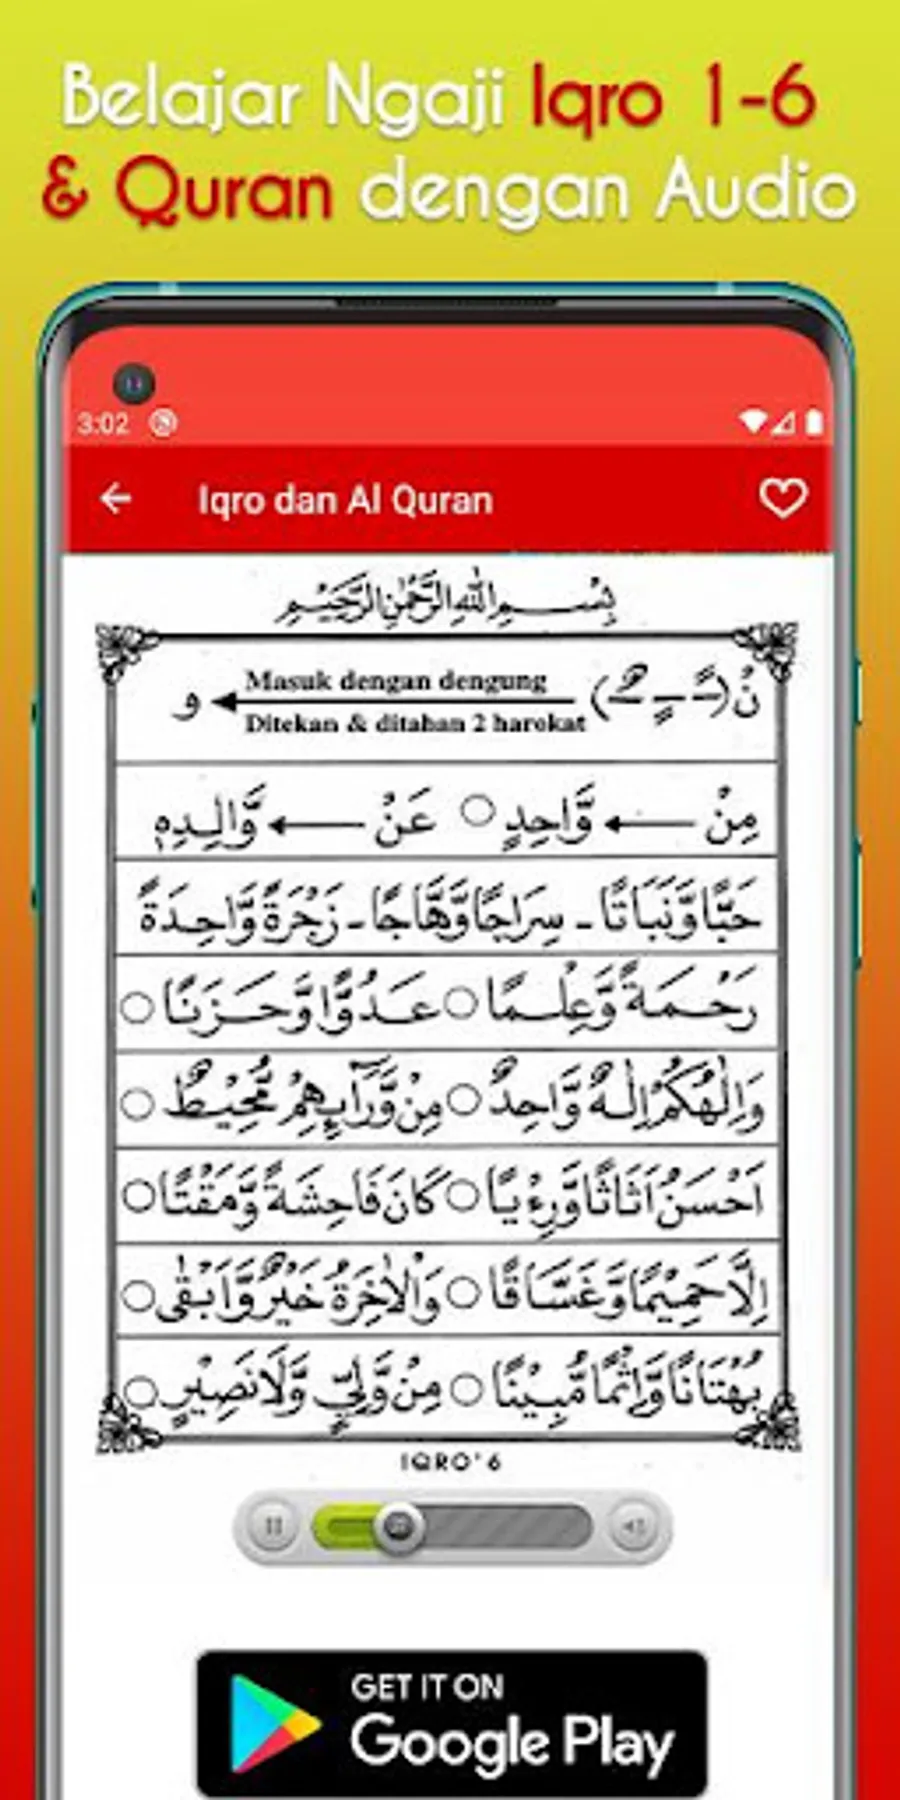 Belajar Ngaji Iqro 1-6
& Quran dengan Audio
3:02
Iqro dan Al Quran
بِسْمِ اللهِ الرَّحْمٰنِ الرَّحِيْمِ
نْ (ـًـ ـٍـ ـٌـ) Masuk dengan dengung و
Ditekan & ditahan 2 harokat
مِنْ وَّاحِدٍ ○ عَنْ وَّالِدِهٖ
حَبًّا وَّنَبَاتًا - سِرَاجًا وَّهَّاجًا - زَجْرَةٌ وَّاحِدَةٌ
رَحْمَةً وَّعِلْمًا ○ عَدُوًّا وَّحَزَنًا ○
وَاِلٰهُكُمْ اِلٰهٌ وَّاحِدٌ ○ مِنْ وَّرَآىِٕهِمْ مُّحِيْطٌ ○
اَحْسَنُ اَثَاثًا وَّرِءْيًا ○ كَانَ فَاحِشَةً وَّمَقْتًا ○
اِلَّا حَمِيْمًا وَّغَسَّاقًا ○ وَالْاٰخِرَةُ خَيْرٌ وَّاَبْقٰى ○
بُهْتَانًا وَّاِثْمًا مُّبِيْنًا ○ مِنْ وَّلِيٍّ وَّلَا نَصِيْرٍ ○
IQRO' 6
GET IT ON
Google Play